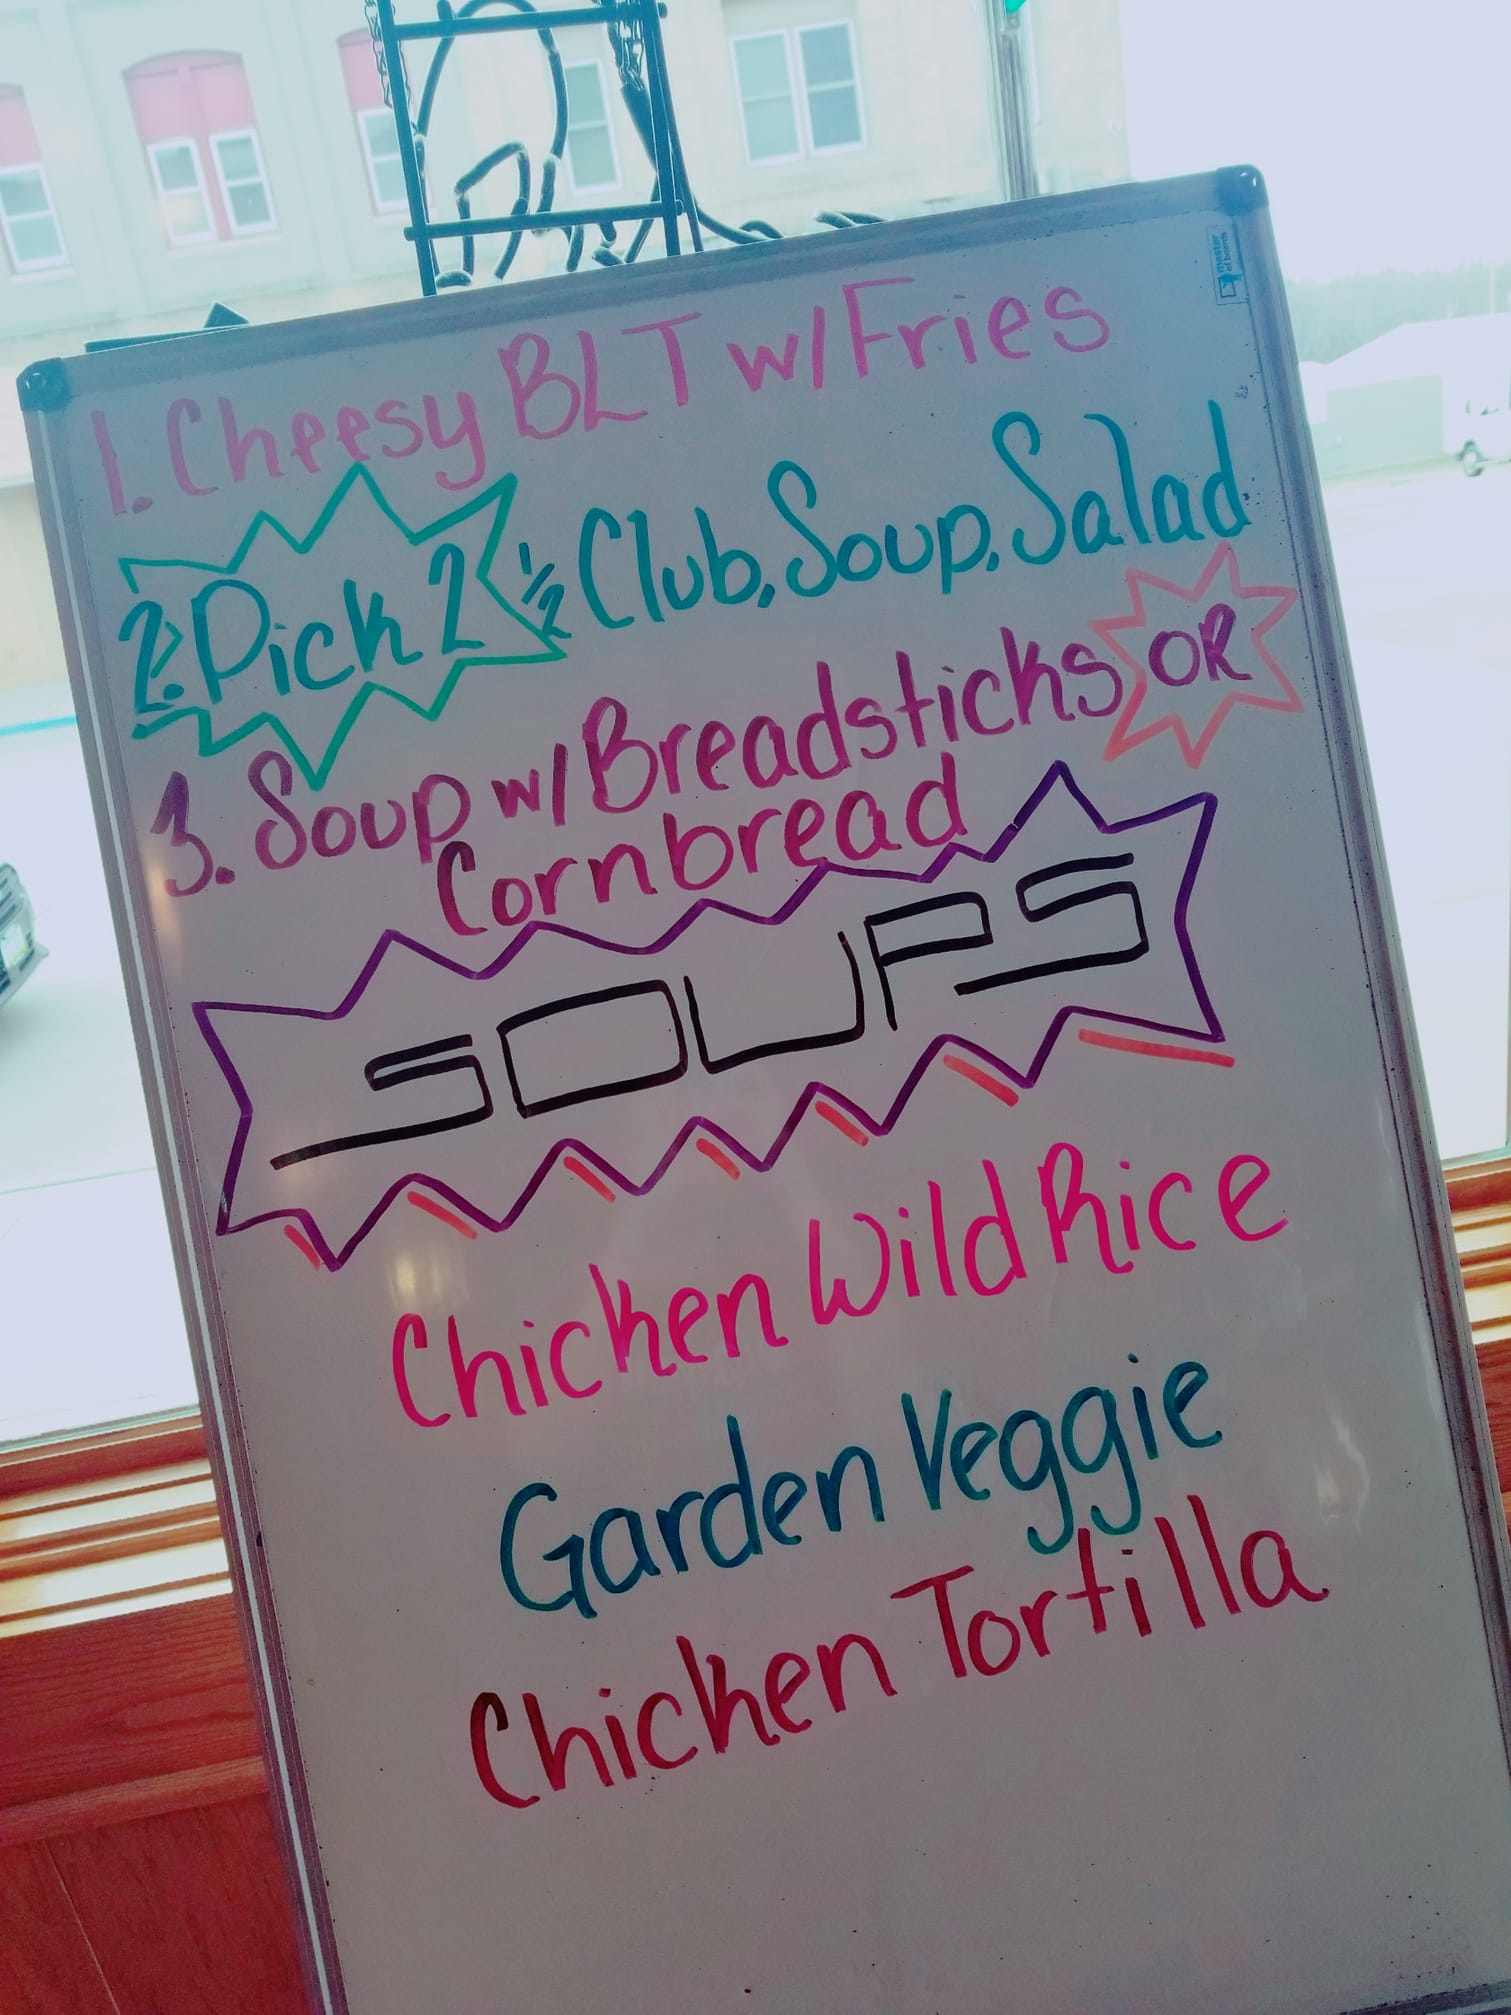 master
of boards
1. Cheesy BLT w/Fries
2. Pick 2 1/2 Club, Soup, Salad
3. Soup w/Breadsticks OR
Cornbread
SOUPS
Chicken Wild Rice
Garden Veggie
Chicken Tortilla